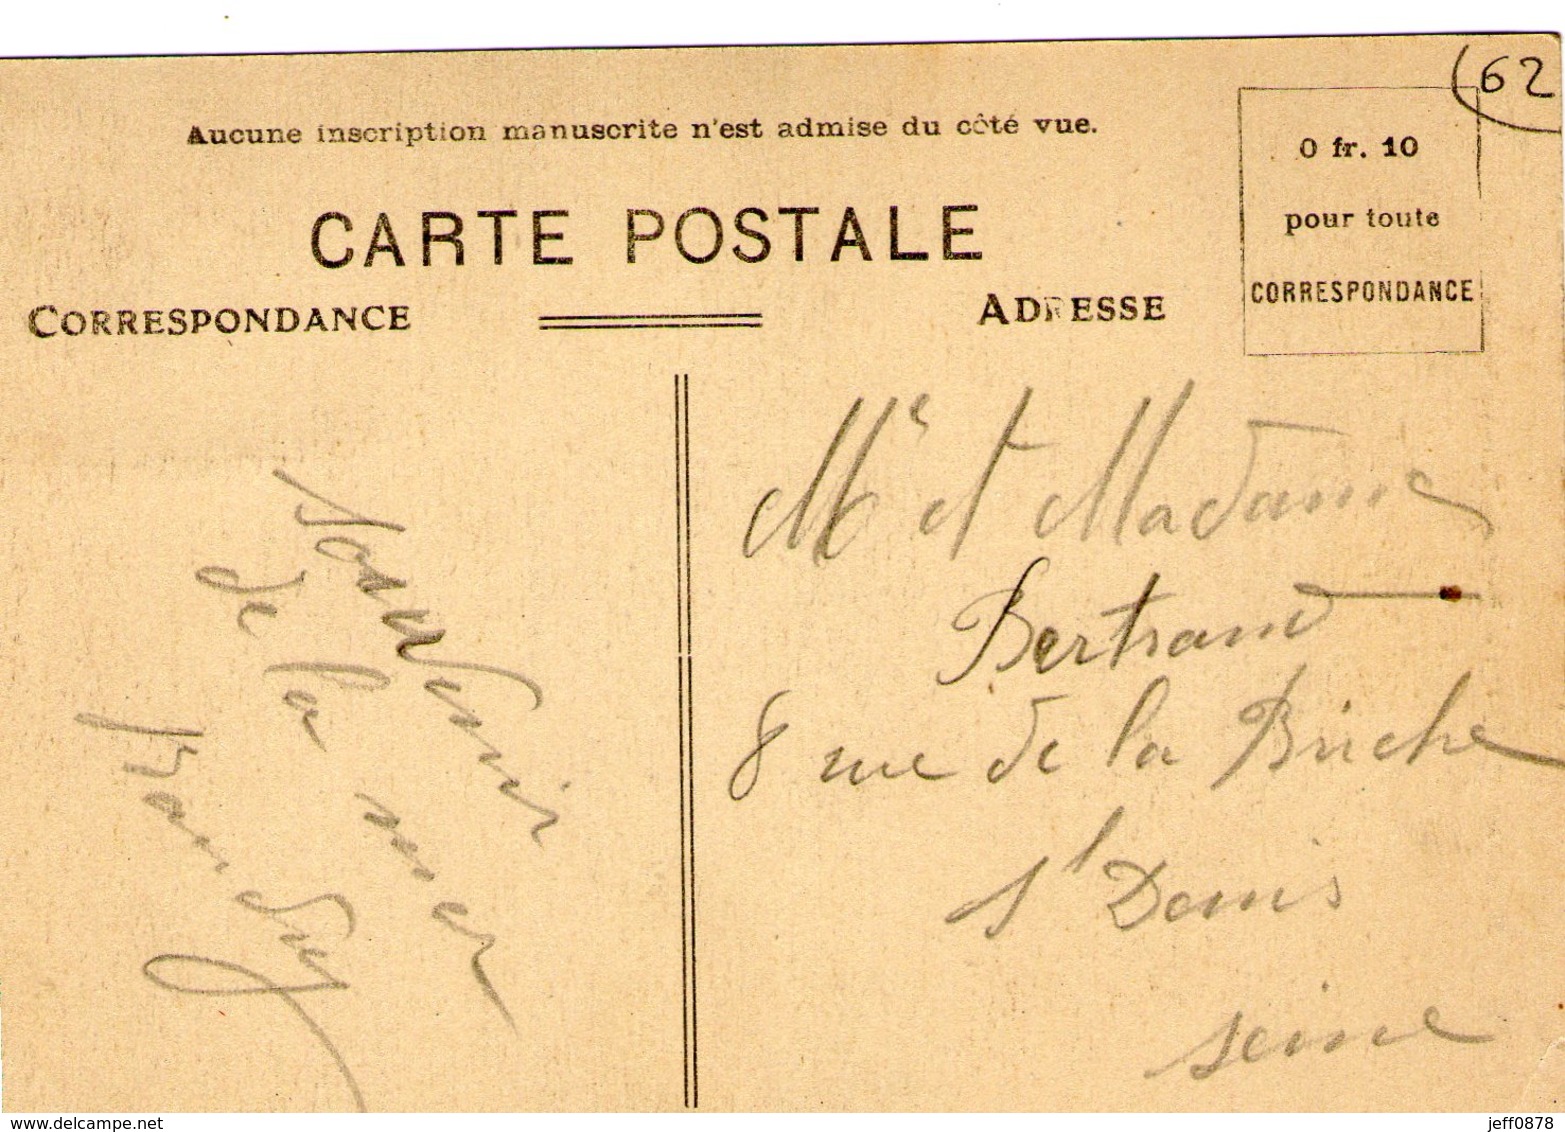 (62
Aucune inscription manuscrite n'est admise du côté vue.
0 fr. 10
pour toute
CORRESPONDANCE
CARTE POSTALE
CORRESPONDANCE
ADRESSE
Souvenir
de la mer
Mr et Madame
Bertrand
8 rue de la Briche
St Denis
seine
delcampe.net
jeff0878